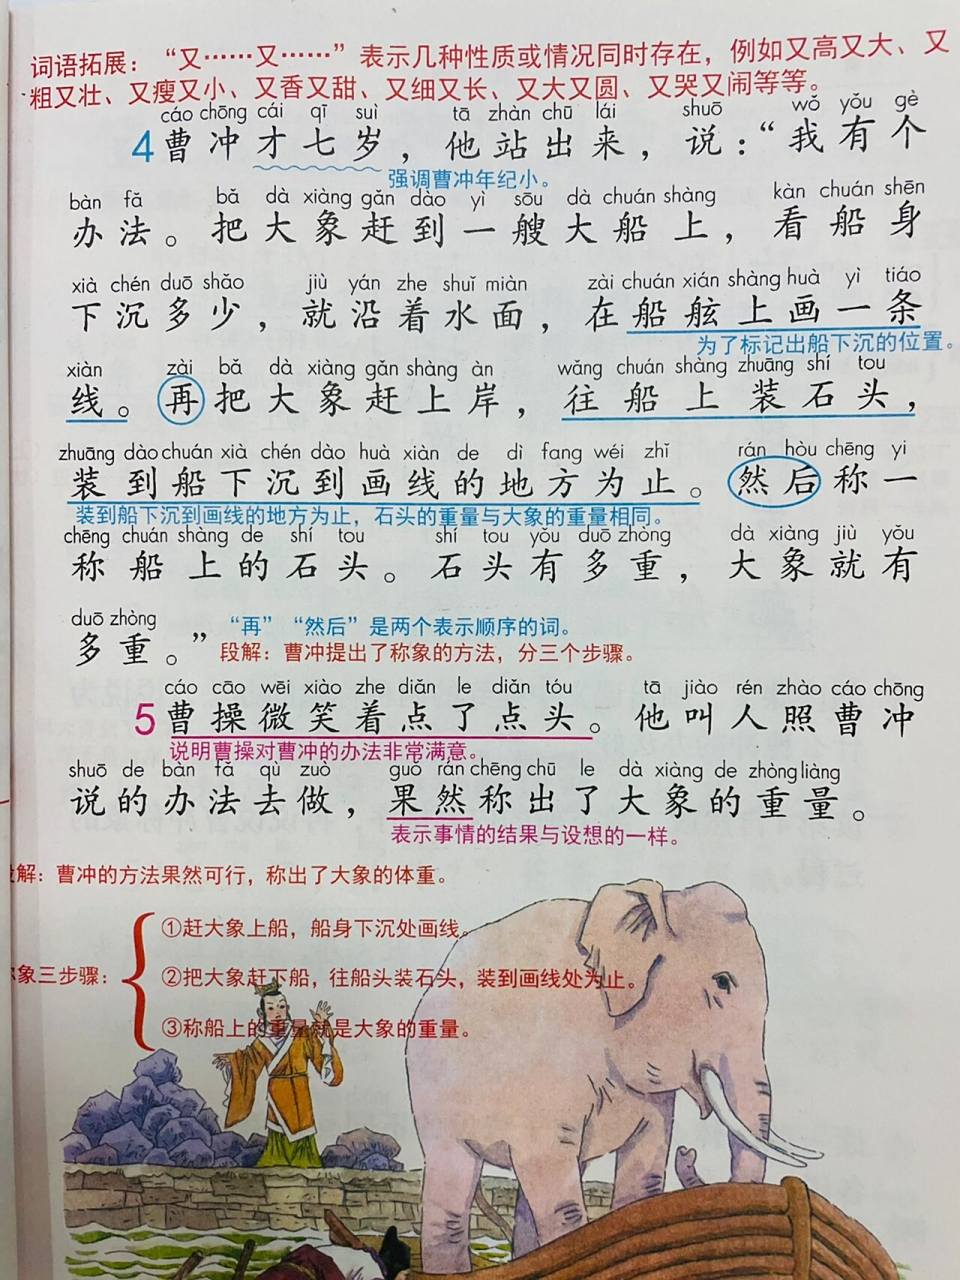 词语拓展：“又……又……”表示几种性质或情况同时存在，例如又高又大、又
粗又壮、又瘦又小、又香又甜、又细又长、又大又圆、又哭又闹等等。
cáo chōng cái qī suì tā zhàn chū lái shuō wǒ yǒu gè
4 曹冲才七岁，他站出来，说：“我有个
强调曹冲年纪小。
bàn fǎ bǎ dà xiàng gǎn dào yì sōu dà chuán shàng kàn chuán shēn
办法。把大象赶到一艘大船上，看船身
xià chén duō shǎo jiù yán zhe shuǐ miàn zài chuán xián shàng huà yì tiáo
下沉多少，就沿着水面，在船舷上画一条
为了标记出船下沉的位置。
xiàn zài bǎ dà xiàng gǎn shàng àn wǎng chuán shàng zhuāng shí tou
线。再把大象赶上岸，往船上装石头，
zhuāng dào chuán xià chén dào huà xiàn de dì fang wéi zhǐ rán hòu chēng yi
装到船下沉到画线的地方为止。然后称一
装到船下沉到画线的地方为止，石头的重量与大象的重量相同。
chēng chuán shàng de shí tou shí tou yǒu duō zhòng dà xiàng jiù yǒu
称船上的石头。石头有多重，大象就有
duō zhòng
多重。”
“再”“然后”是两个表示顺序的词。
段解：曹冲提出了称象的方法，分三个步骤。
cáo cāo wēi xiào zhe diǎn le diǎn tóu tā jiào rén zhào cáo chōng
5 曹操微笑着点了点头。他叫人照曹冲
说明曹操对曹冲的办法非常满意。
shuō de bàn fǎ qù zuò guǒ rán chēng chū le dà xiàng de zhòng liàng
说的办法去做，果然称出了大象的重量。
表示事情的结果与设想的一样。
解：曹冲的方法果然可行，称出了大象的体重。
①赶大象上船，船身下沉处画线。
象三步骤：
②把大象赶下船，往船头装石头，装到画线处为止。
③称船上的重量就是大象的重量。